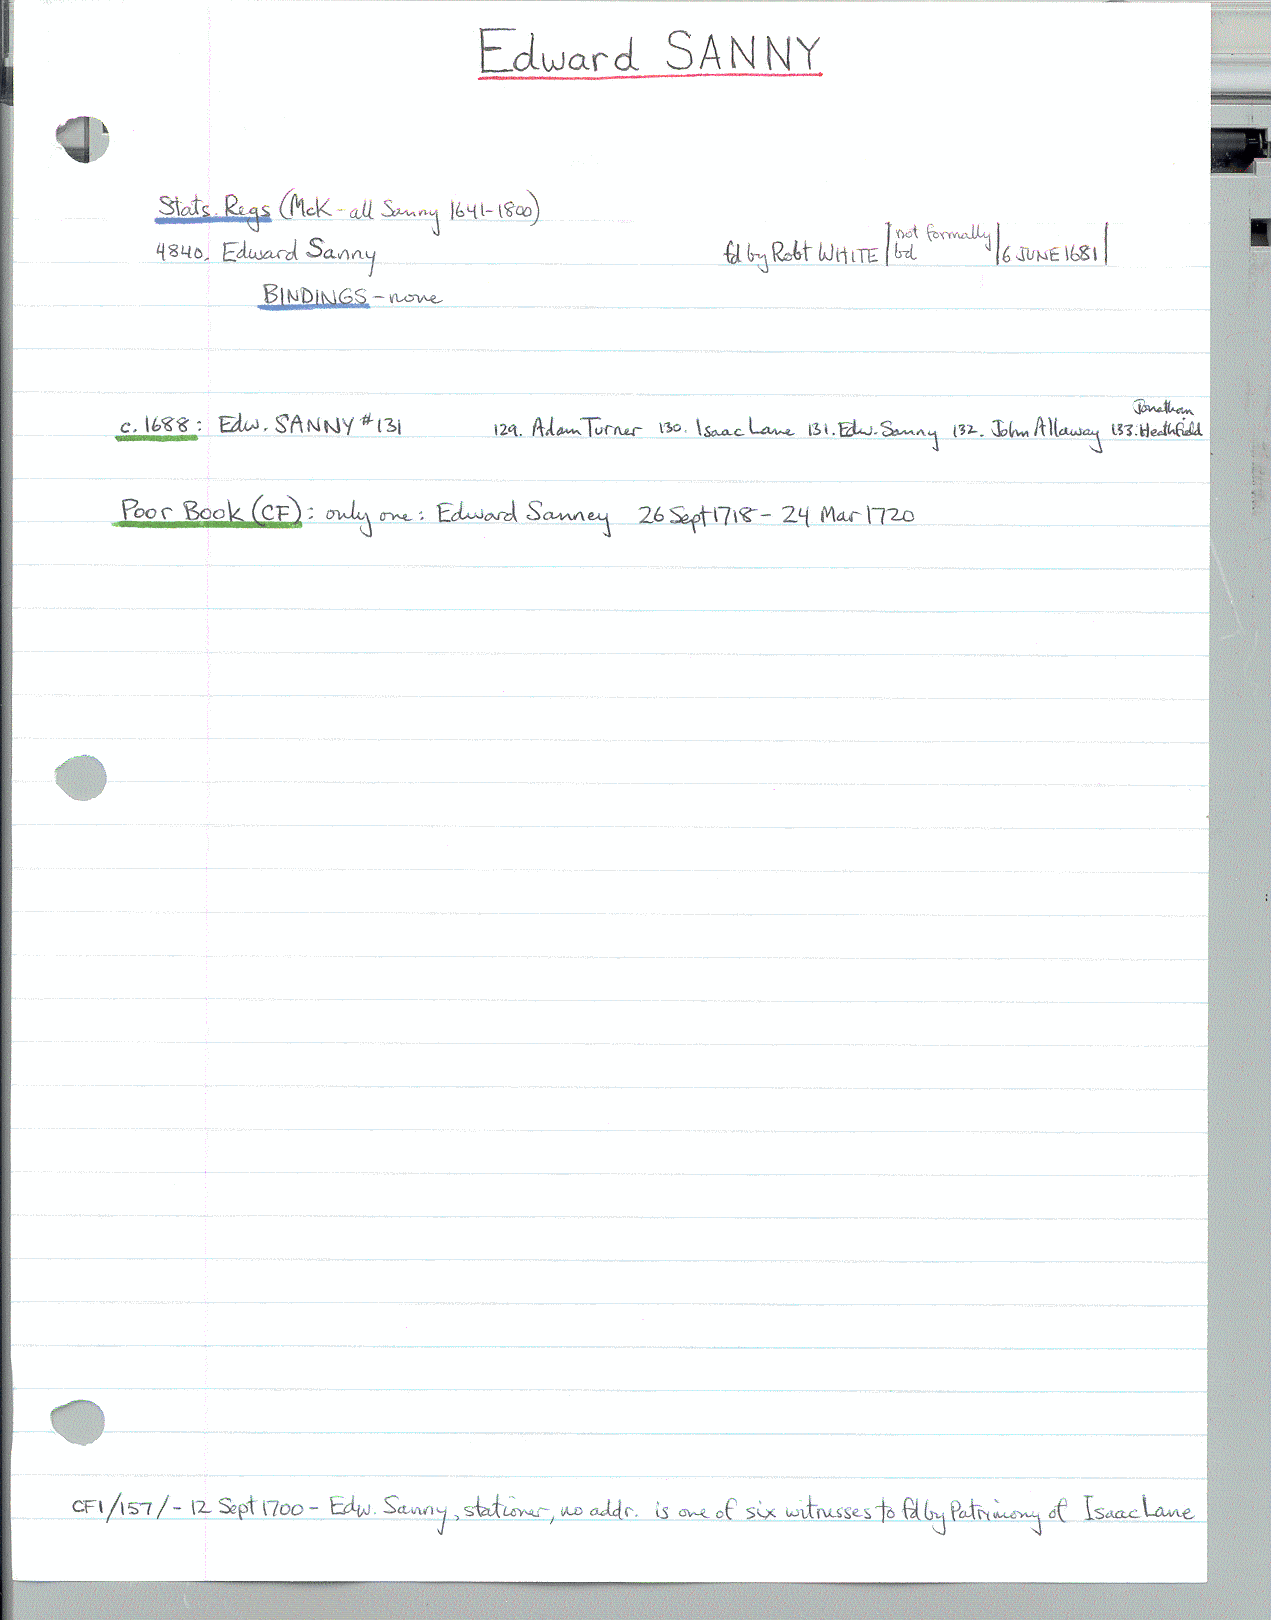 Edward SANNY
Stats. Regs (McK - all Sanny 1641-1800)
4840. Edward Sanny fd by Robt WHITE | not formally bd | 6 JUNE 1681 |
BINDINGS - none
c. 1688: Edw. SANNY #131 129. Adam Turner 130. Isaac Lane 131. Edw. Sanny 132. John Allaway 133. Jonathan Heathfield
Poor Book (CF): only one: Edward Sanney 26 Sept 1718 - 24 Mar 1720
CF1/157/ - 12 Sept 1700 - Edw. Sanny, stationer, no addr. is one of six witnesses to fd by Patrimony of Isaac Lane